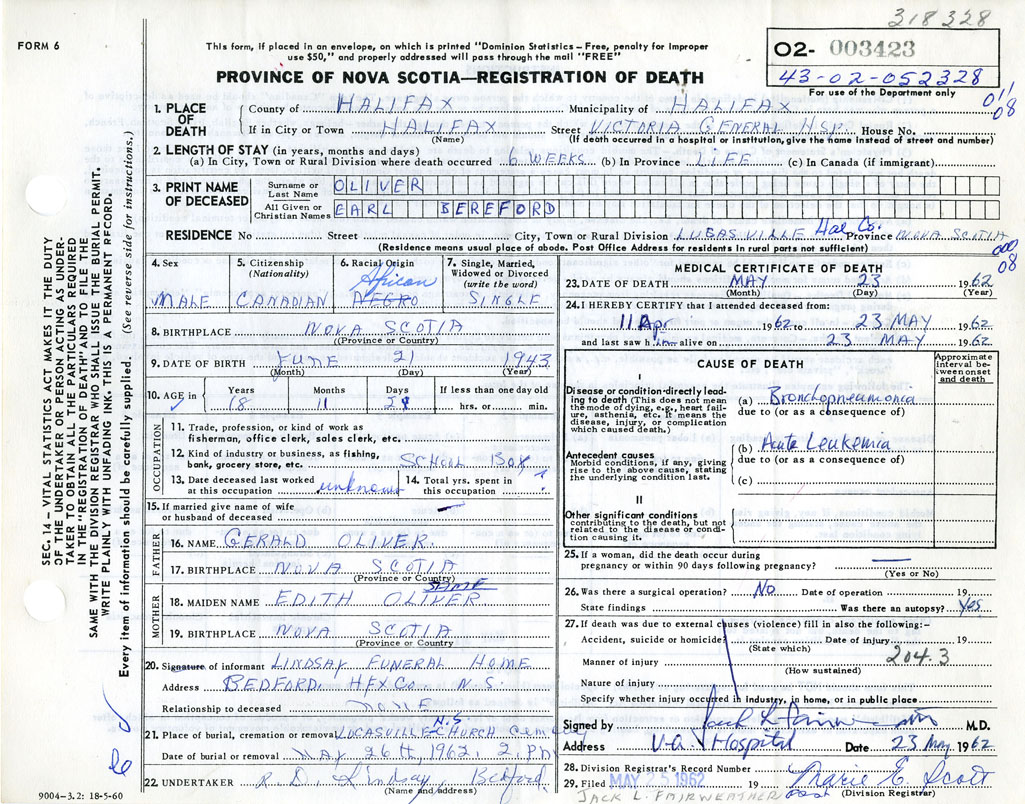 318328
FORM 6
This form, if placed in an envelope, on which is printed "Dominion Statistics – Free, penalty for improper
use $50," and properly addressed will pass through the mail "FREE"
PROVINCE OF NOVA SCOTIA—REGISTRATION OF DEATH
02- 003423
43-02-052328
For use of the Department only
011
08
1. PLACE OF DEATH
County of HALIFAX Municipality of HALIFAX
If in City or Town HALIFAX Street VICTORIA GENERAL HSP. House No.
(Name) (If death occurred in a hospital or institution, give the name instead of street and number)
2. LENGTH OF STAY (in years, months and days)
(a) In City, Town or Rural Division where death occurred 6 WEEKS (b) In Province LIFE (c) In Canada (if immigrant)
3. PRINT NAME OF DECEASED
Surname or Last Name OLIVER
All Given or Christian Names EARL BEREFORD
RESIDENCE No Street City, Town or Rural Division LUCASVILLE Hal Co. Province NOVA SCOTIA
(Residence means usual place of abode. Post Office Address for residents in rural parts not sufficient)
000
08
4. Sex MALE
5. Citizenship (Nationality) CANADIAN
6. Racial Origin African NEGRO
7. Single, Married, Widowed or Divorced (write the word) SINGLE
8. BIRTHPLACE NOVA SCOTIA
(Province or Country)
9. DATE OF BIRTH JUNE 21 1943
(Month) (Day) (Year)
10. AGE in Years 18 Months 11 Days If less than one day old hrs. or min.
OCCUPATION
11. Trade, profession, or kind of work as
fisherman, office clerk, sales clerk, etc.
12. Kind of industry or business, as fishing,
bank, grocery store, etc. SCHOOL BOY
13. Date deceased last worked
at this occupation unknown
14. Total yrs. spent in
this occupation
15. If married give name of wife
or husband of deceased
FATHER
16. NAME GERALD OLIVER
17. BIRTHPLACE NOVA SCOTIA
(Province or Country)
MOTHER
SAME
18. MAIDEN NAME EDITH OLIVER
19. BIRTHPLACE NOVA SCOTIA
(Province or Country)
20. Signature of informant LINDSAY FUNERAL HOME
Address BEDFORD, HFX CO. N.S.
Relationship to deceased NONE
N.S.
21. Place of burial, cremation or removal LUCASVILLE CHURCH Cemetery
Date of burial or removal MAY 26th, 1962, 2. PM
22. UNDERTAKER R. D. Lindsay, Bedford
(Name and address)
9004-3.2: 18-5-60
MEDICAL CERTIFICATE OF DEATH
23. DATE OF DEATH MAY 23 1962
(Month) (Day) (Year)
24. I HEREBY CERTIFY that I attended deceased from:
11 Apr 1962 to 23 MAY 1962
and last saw him alive on 23 MAY 1962
CAUSE OF DEATH
Approximate interval between onset and death
I
Disease or condition-directly leading to death (This does not mean the mode of dying, e.g., heart failure, asthenia, etc. It means the disease, injury, or complication which caused death.)
(a) Bronchopneumonia
due to (or as a consequence of)
Antecedent causes
Morbid conditions, if any, giving rise to the above cause, stating the underlying condition last.
(b) Acute Leukemia
due to (or as a consequence of)
(c)
II
Other significant conditions
contributing to the death, but not related to the disease or condition causing it.
25. If a woman, did the death occur during
pregnancy or within 90 days following pregnancy?
(Yes or No)
26. Was there a surgical operation? NO Date of operation 19
State findings Was there an autopsy? Yes
27. If death was due to external causes (violence) fill in also the following:-
Accident, suicide or homicide Date of injury 19
(State which)
204.3
Manner of injury
(How sustained)
Nature of injury
Specify whether injury occurred in industry, in home, or in public place
Signed by Jack L Fairweather M.D.
Address V.G. Hospital Date 23 May 1962
28. Division Registrar's Record Number
29. Filed MAY 25 1962 19 Marie E. Scott
(Division Registrar)
JACK L. FAIRWEATHER
SEC. 14 – VITAL STATISTICS ACT MAKES IT THE DUTY
OF THE UNDERTAKER OR PERSON ACTING AS UNDER-
TAKER TO OBTAIN ALL THE PARTICULARS REQUIRED
IN THE "REGISTRATION OF DEATH" AND TO FILE THE
SAME WITH THE DIVISION REGISTRAR WHO SHALL ISSUE THE BURIAL PERMIT.
WRITE PLAINLY WITH UNFADING INK. THIS IS A PERMANENT RECORD.
Every item of information should be carefully supplied. (See reverse side for instructions.)